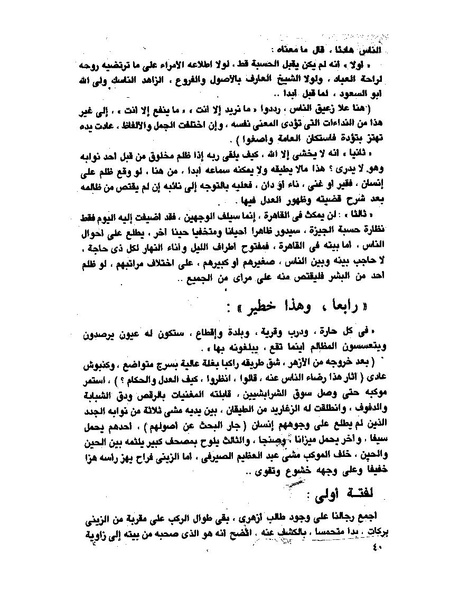 الناس هادئا ، قال ما معناه :
« أولا » انه لم يكن يقبل الحسبة قط ، لولا اطلاعه الأمراء على ما ترتضيه روحه
لراحة العباد ، ولولا الشيخ العارف بالأصول والفروع ، الزاهد الناسك ولى الله
أبو السعود ، لما قبل أبدا ..
( هنا علا زعيق الناس ، رددوا « ما نريد إلا أنت » ، « ما ينفع إلا أنت » ، إلى غير
هذا من النداءات التى تؤدى المعنى نفسه ، وإن اختلفت الجمل والألفاظ ، عادت يده
تهتز بتؤدة فاستكان العامة وأصغوا ) .
« ثانيا » أنه لا يخشى إلا الله ، كيف يلقى ربه إذا ظلم مخلوق من قبل أحد نوابه
وهو لا يدرى ؟ هذا مالا يطيقه ولا يمكنه سماعه أبدا ، من هنا ، لو وقع ظلم على
إنسان ، فقير أو غنى ، ناء أو دان ، فعليه بالتوجه إلى نائبه إن لم يقتص من ظالمه
بعد شرح قضيته وظهور العدل فيها .
« ثالثا » : لن يمكث فى القاهرة ، إنما سيلف الوجهين ، فقد أضيفت إليه اليوم فقط
نظارة حسبة الجيزة ، سيدور ظاهرا أحيانا ومتخفيا حينا آخر ، يطلع على أحوال
الناس ، أما بيته فى القاهرة ، فمفتوح أطراف الليل وآناء النهار لكل ذى حاجة ،
لا حاجب بينه وبين الناس ، صغيرهم أو كبيرهم ، على اختلاف مراتبهم ، لو ظلم
أحد من البشر فليقتص منه على مرأى من الجميع ..
« رابعا ، وهذا خطير » :
« فى كل حارة ، ودرب وقرية ، وبلدة وإقطاع ، ستكون له عيون يرصدون
ويتعسسون المظالم أينما تقع ، يبلغونه بها » .
( بعد خروجه من الأزهر ، شق طريقه راكبا بغلة عالية بسرج متواضع ، وكنبوش
عادى ( أثار هذا رضاء الناس عنه ، قالوا ، انظروا ، كيف العدل والحكام ؟ ) ، استمر
موكبه حتى وصل سوق الشرابشيين ، قابلته المغنيات بالرقص ودق الشبابة
والدفوف ، وانطلقت له الزغاريد من الطيقان ، بين يديه مشى ثلاثة من نوابه الجدد
الذين لم يطلع على وجوههم إنسان ( جار البحث عن أصولهم ) ، أحدهم يحمل
سيفا ، وآخر يحمل ميزانا وصنجا ، والثالث يلوح بمصحف كبير يلثمه بين الحين
والحين ، خلف الموكب مشى عبد العظيم الصيرفى ، أما الزينى فراح يهز رأسه هزا
خفيفا وعلى وجهه خشوع وتقوى ..
لفتة أولى :
أجمع رجالنا على وجود طالب أزهرى ، بقى طوال الركب على مقربة من الزينى
بركات ، بدا متحمسا ، بالكشف عنه ، اتضح أنه هو الذى صحبه من بيته إلى زاوية
٤٠